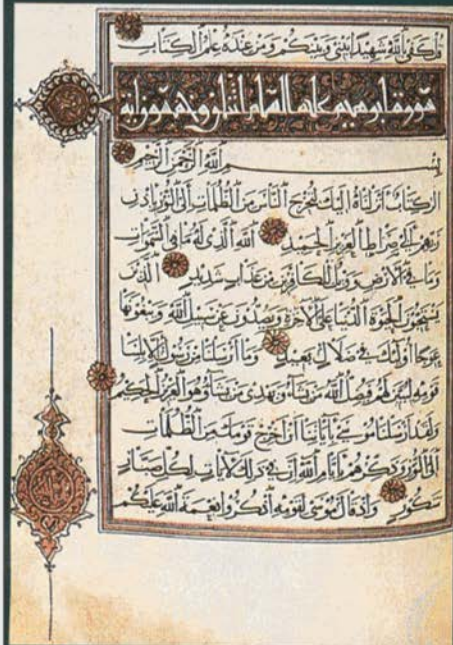 قل كفى بالله شهيدا بيني وبينكم ومن عنده علم الكتاب
سورة ابرهيم عليه السلام
بسم الله الرحمن الرحيم
الر كتاب انزلناه اليك لتخرج الناس من الظلمات الى النور باذن
ربهم الى صراط العزيز الحميد الله الذي له ما في السموات
وما في الارض وويل للكافرين من عذاب شديد الذين
يستحبون الحيوة الدنيا على الآخرة ويصدون عن سبيل الله ويبغونها
عوجا اولئك في ضلال بعيد وما ارسلنا من رسول الا بلسا
قومه ليبين لهم فيضل الله من يشاء ويهدي من يشاء وهو العزيز الحكيم
ولقد ارسلنا موسى باياتنا ان اخرج قومك من الظلمات
الى النور وذكرهم بايام الله ان في ذلك لآيات لكل صبار
شكور واذ قال موسى لقومه اذكروا نعمة الله عليكم